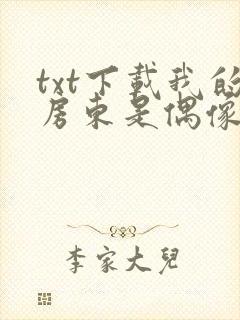 txt下载我的
房东是偶像
李家大儿